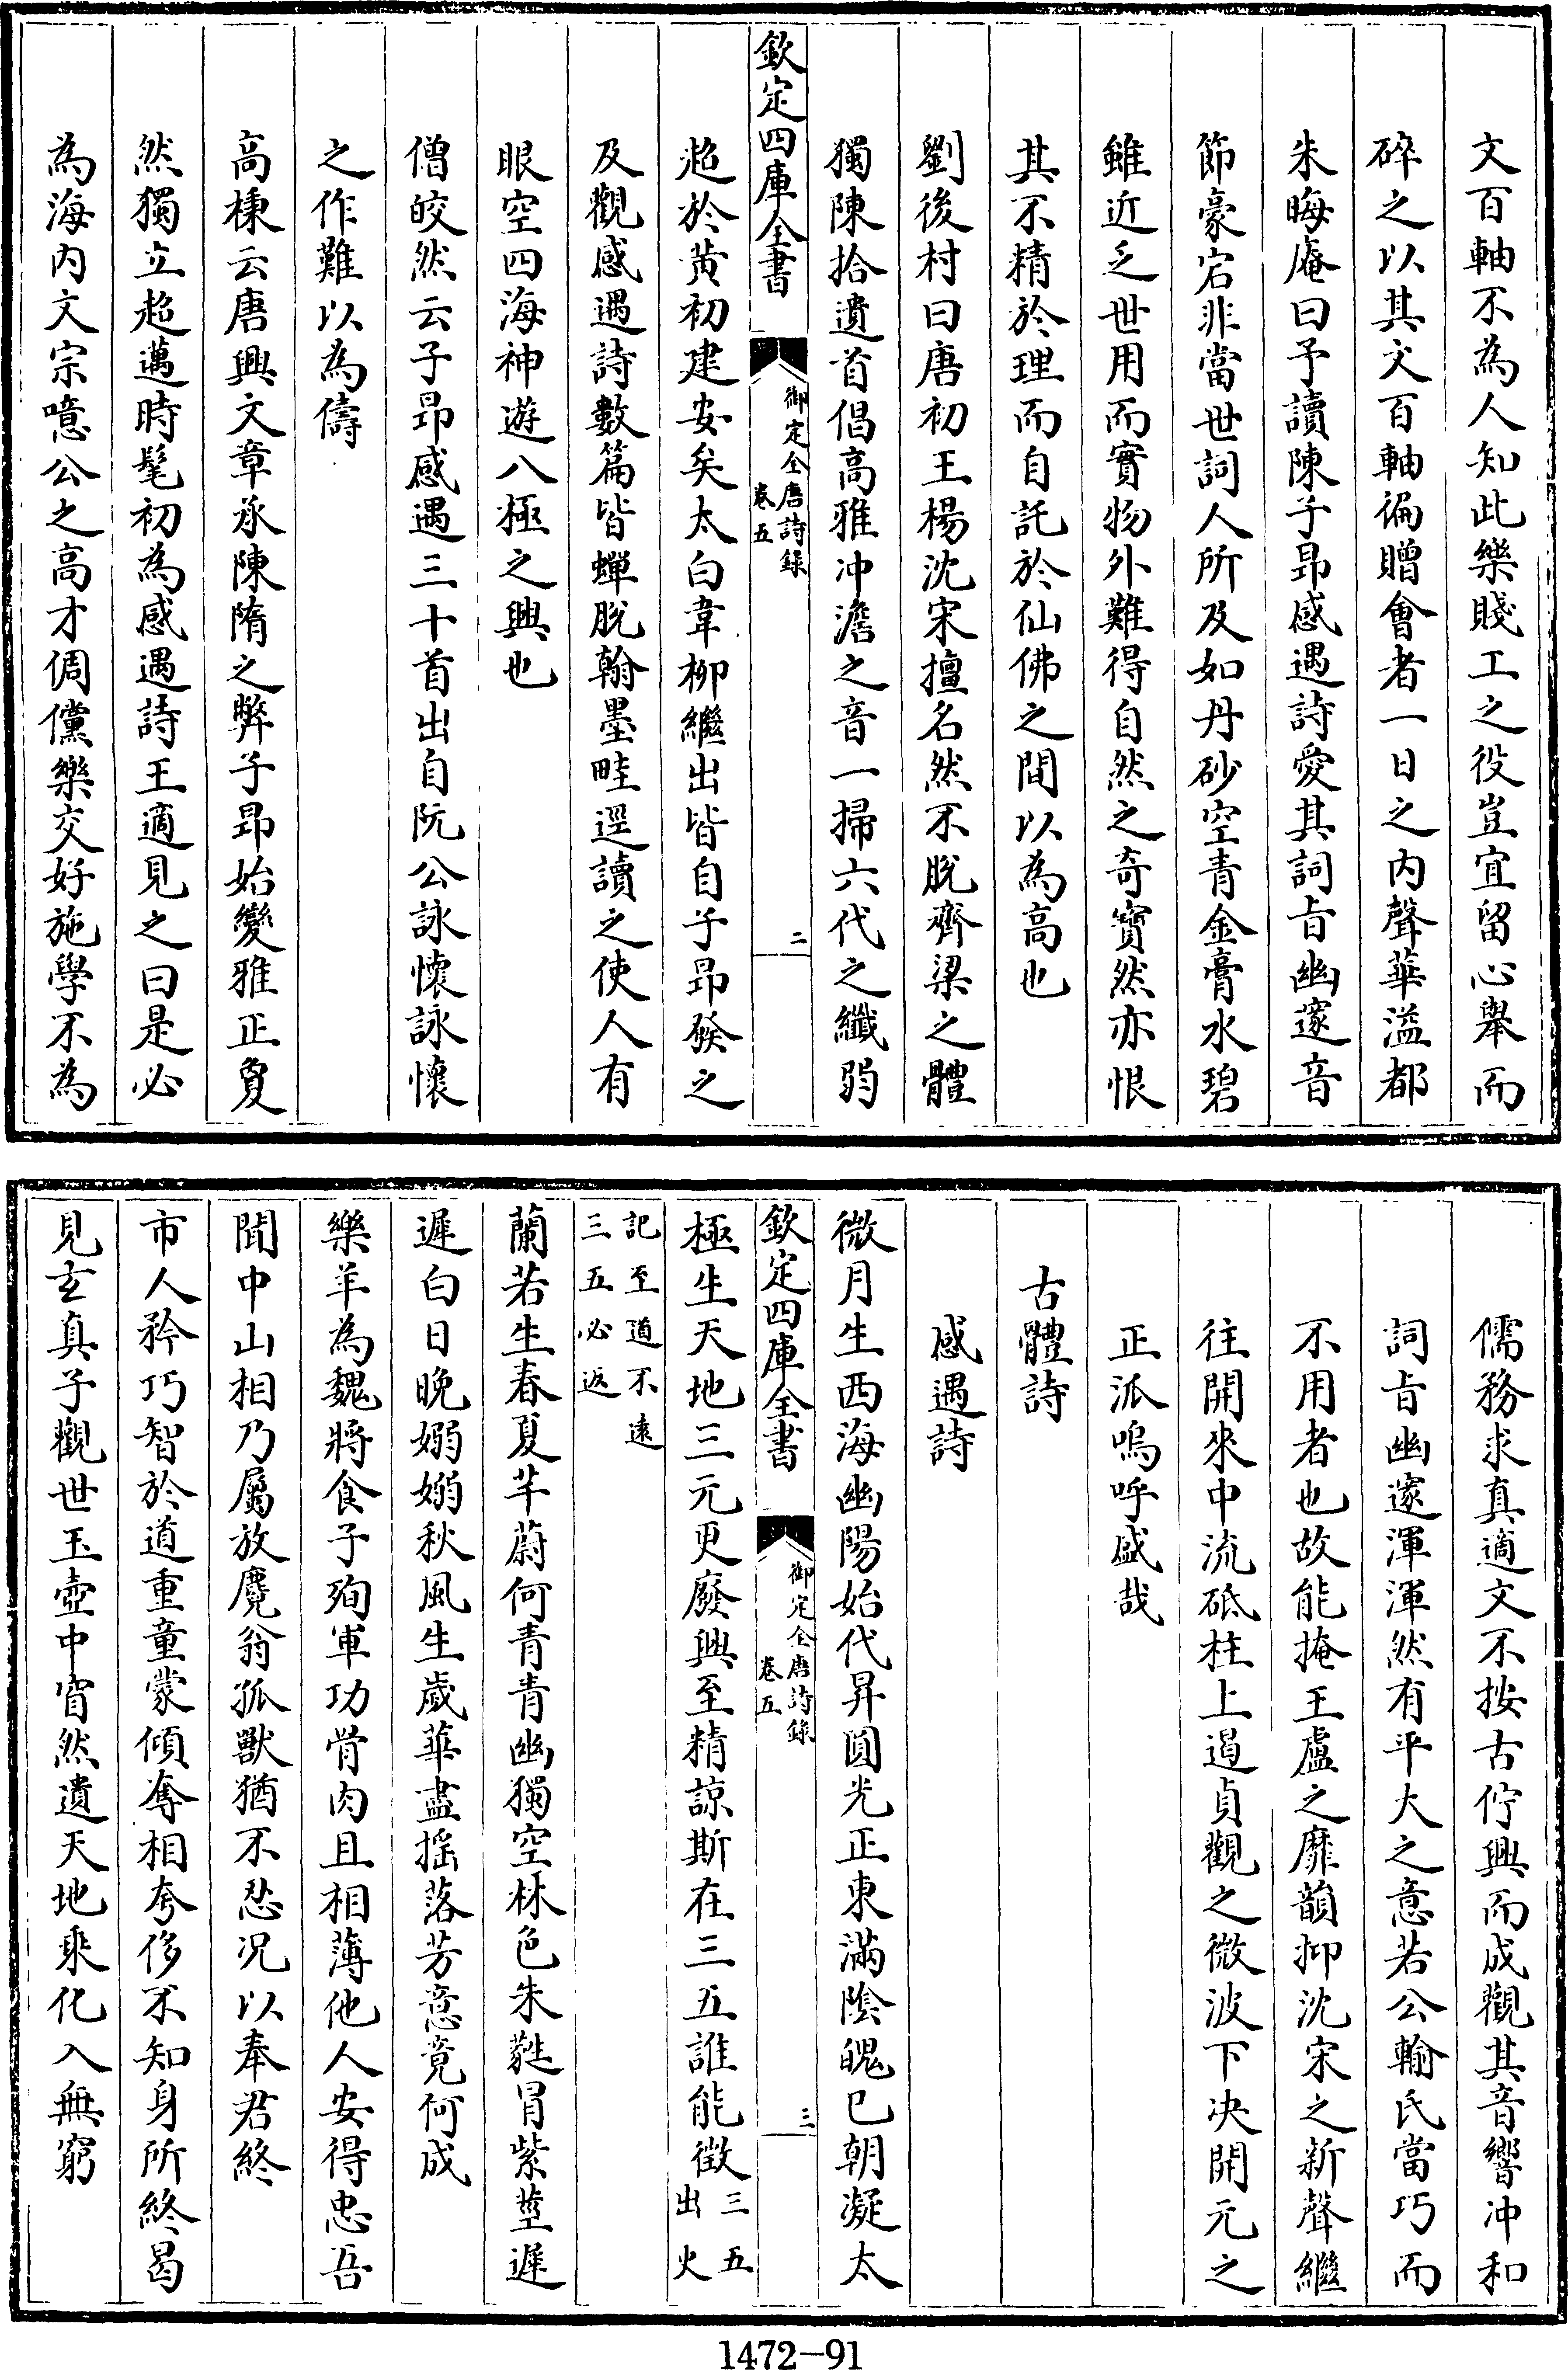 文百軸不為人知此樂賤工之役豈宜留心舉而
碎之以其文百軸徧贈會者一日之内聲華溢都
朱晦庵曰予讀陳子昻感遇詩愛其詞㫖幽邃音
節豪宕非當世詞人所及如丹砂空青金膏水碧
雖近乏世用而實物外難得自然之奇寶然亦恨
其不精於理而自託於仙佛之間以為高也
劉後村曰唐初王楊沈宋擅名然不脱齊梁之體
獨陳拾遺首倡高雅冲澹之音一掃六代之纖弱
欽定四庫全書
御定全唐詩錄
卷五
二
趂於黄初建安矣太白韋栁繼出皆自子昻發之
及觀感遇詩數篇皆蟬脱翰墨畦逕讀之使人有
眼空四海神遊八極之興也
僧皎然云子昻感遇三十首出自阮公詠懐詠懐
之作難以為儔
高棅云唐興文章承陳隋之弊子昻始變雅正夐
然獨立超邁時髦初為感遇詩王適見之曰是必
為海内文宗噫公之高才倜儻樂交好施學不為
儒務求真適文不按古佇興而成觀其音響冲和
詞㫖幽邃渾渾然有平大之意若公輸氏當巧而
不用者也故能掩王盧之靡韻抑沈宋之新聲繼
往開來中流砥柱上遏貞觀之微波下决開元之
正派嗚呼盛哉
古體詩
感遇詩
微月生西海幽陽始代昇圓光正東滿隂魄已朝凝太
欽定四庫全書
御定全唐詩錄
卷五
三
極生天地三元更廢興至精諒斯在三五誰能徴三五
出火
記至道不逺
三五必返
蘭若生春夏芊蔚何青青幽獨空林色朱蕤冒紫莖遲
遲白日晩嫋嫋秋風生歲華盡揺落芳意竟何成
樂羊為魏將食子殉軍功骨肉且相薄他人安得忠吾
聞中山相乃屬放麑翁孤獸猶不忍况以奉君終
市人矜巧智於道重童蒙傾奪相夸侈不知身所終曷
見玄真子觀世玉壺中窅然遺天地乘化入無窮
1472-91